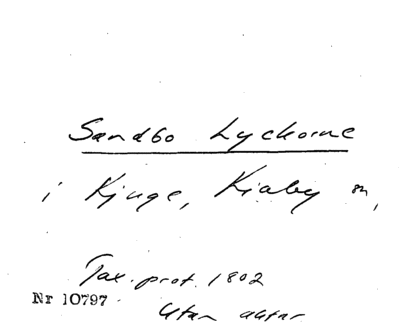 Sandbo Lyckorne
i Kjuge, Kiaby sn,
Tax. prot. 1802
Nr 10797
Utan